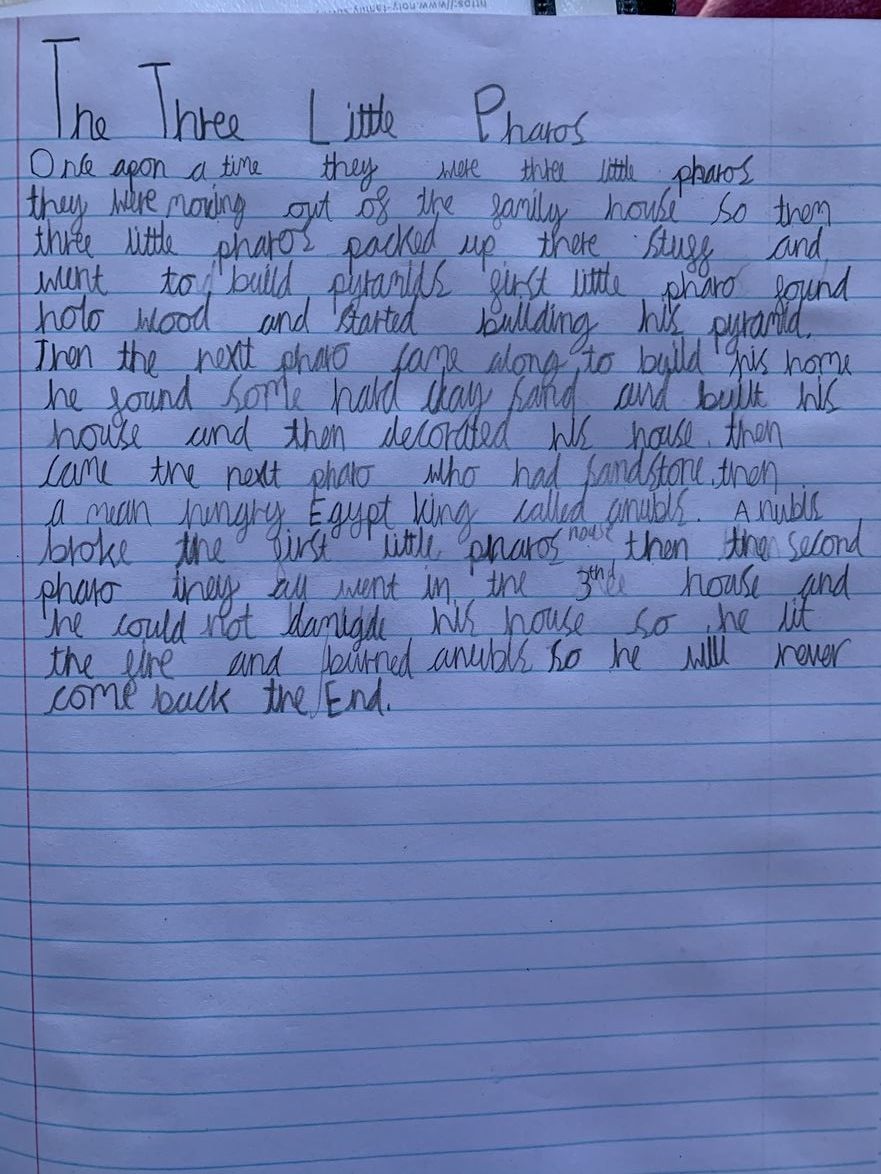 The Three Little Pharos
Once apon a time they were three little pharos
they were moving out of the family house so them
three little pharos packed up there stuff and
went to build pyramids first little pharo found
holo wood and started building his pyramid.
Then the next pharo came along to build his home
he found some hard clay sand and built his
house and then decorated his house. then
came the next pharo who had sandstone. then
a mean hungry Egypt king called anubis. Anubis
broke the first little pharos house then the second
pharo they all went in the 3th house and
he could not damigde his house so he lit
the fire and burned anubis so he will never
come back the End.